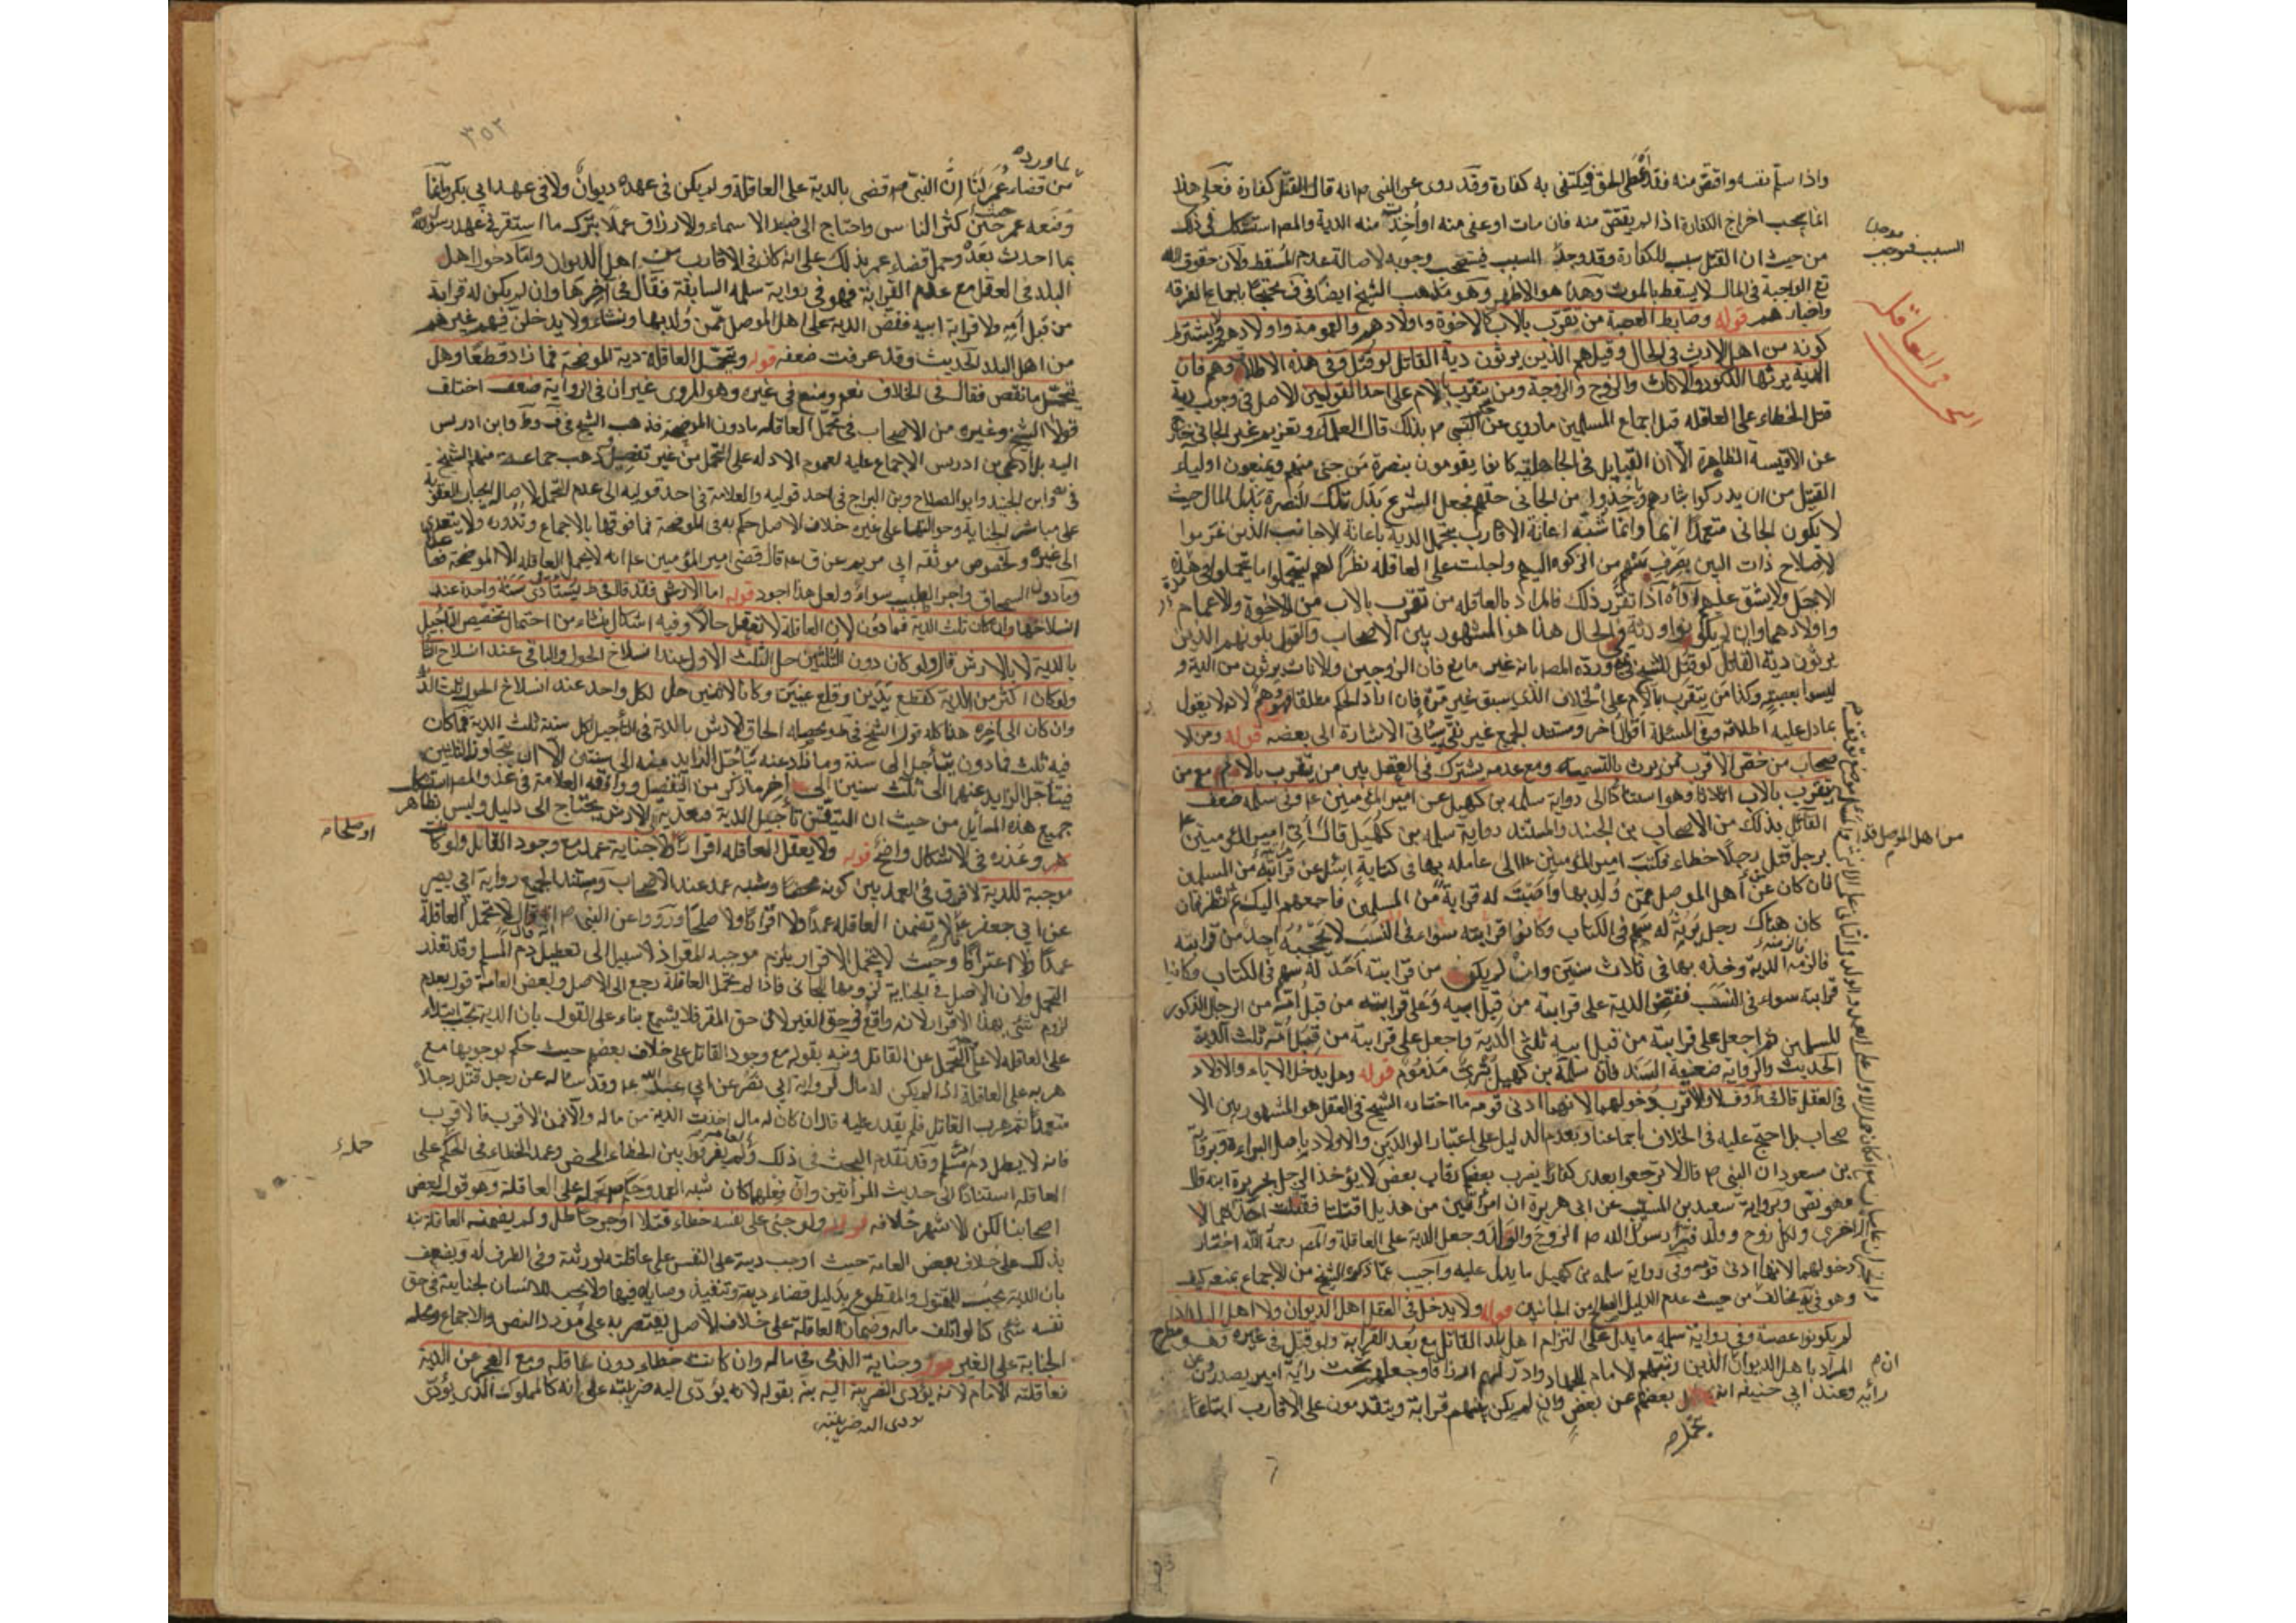 واذا سلم نفسه واقتص منه فقد اعطى الحق فيكتفى به كفارة وقد روى عن النبي ص انه قال القتل كفارة فعلى هذا
انما يجب اخراج الكفارة اذا لم يقتص منه فان مات او عفى منه او اخذت منه الدية والمص استشكل في ذلك
من حيث ان القتل سبب للكفارة وقد وجد السبب فيستحب وجوبه لاصالة عدم المسقط ولان حقوق الله
تع الواجبة في المال لا يسقط بالموت وهذا هو الاظهر وهو مذهب الشيخ ايضا في ف محتجا باجماع الفرقة
واخبارهم قوله وضابط العصبة من يتقرب بالاب كالاخوة واولادهم والعمومة واولادهم ولا يشترط
كونه من اهل الارث في الحال وقيل هم الذين يرثون دية القاتل لو قتل وفي هذه الاطلاق وهم فان
الدية يرثها الذكور والاناث والزوج والزوجة ومن يتقرب بالام على احد القولين الاصل في وجوب دية
قتل الخطاء على العاقلة قبل اجماع المسلمين ما روي عن النبي ص بذلك قال العلماء وتغريم غير الجاني خارج
عن الاقيسة الظاهرة الا ان القبايل في الجاهلية كانوا يقومون بنصرة من جنى منهم ويمنعون اولياء
القتيل من ان يدركوا بثارهم وياخذوا من الجاني حقهم فجعل الشرع بدل تلك النصرة بذل المال حيث
لا يكون الجاني متعمدا اثما وانما شبه اعانة الاقارب بتحمل الدية باعانة الاجانب الذين غرموا
لاصلاح ذات البين بصرف سهم من الزكوة اليهم واجلت على العاقلة نظرا لهم ليتحملوا ما يتحملوا في هذه
الاجل ولا يشق عليهم اداؤه اذا تقرر ذلك فالمراد بالعاقلة من تقرب بالاب من الاخوة والاعمام
واولادهما وان لم يكونوا ورثة في الحال هذا هو المشهور بين الاصحاب والقول بكونهم الذين
يرثون دية القاتل لو قتل للشيخ في ورده المص بانه غير مانع فان الزوجين والاناث يرثون من الدية و
ليسوا بعصبة وكذا من يتقرب بالام على الخلاف الذي سبق غير مرة فان اراد الحكم مطلقا فهو وهم لانه لا يقول
بما دل عليه اطلاقه وفي المسئلة اقوال اخر ومستند الجميع غير نقي وسيأتي الاشارة الى بعضه قوله ومن الا
صحاب من خص الاقرب ممن يرث بالتسمية ومع عدمه يشترك في العقل بين من يتقرب بالام مع من
يتقرب بالاب اثلاثا وهو استنادا الى رواية سلمة بن كهيل عن امير المؤمنين ع وفي سلمة ضعف
القائل بذلك من الاصحاب بن الجنيد والمستند رواية سلمة بن كهيل قال اتى امير المؤمنين ع
برجل قتل رجلا خطاء فكتب امير المؤمنين ع الى عامله بها في كتابه اسئل عن قرابته من المسلمين
فان كان من اهل الموصل ممن ولد بها واصبت له قرابة من المسلمين فاجمعهم اليك ثم انظر فان
كان هناك رجل يرثه له سهم في الكتاب وكانوا قرابته سواء في النسب لا يحجبه احد من قرابته
فالزمه الدية وخذه بها في ثلاث سنين وان لم يكن من قرابته احد له سهم في الكتاب وكانوا
قرابته سواء في النسب ففض الدية على قرابته من قبل ابيه وعلى قرابته من قبل امه من الرجال المذكور
للمسلمين ثم اجعل على قرابته من قبل ابيه ثلثي الدية واجعل على قرابته من قبل امه ثلث الدية
الحديث والرواية ضعيفة السند فان سلمة بن كهيل بتري مذموم قوله وهل يدخل الاباء والاولاد
في العقل قال في ف لا والاقرب دخولهما لانهما ادنى قومه ما اختاره الشيخ في العقل هو المشهور بين الا
صحاب بل احتج عليه في الخلاف باجماعنا وبعدم الدليل على اعتبار الوالدين والاولاد باصل البراءة وبرواية
بن مسعود ان النبي ص قال لا ترجعوا بعدي كفارا يضرب بعضكم رقاب بعض لا يؤخذ الرجل بجريرة ابنه
فهو نص وبرواية سعيد بن المسيب عن ابي هريرة ان امراتين من هذيل اقتتلتا فقتلت احداهما الا
الاخرى ولكل زوج وولد فبرأ رسول الله ص الزوج والولد وجعل الدية على العاقلة والمص رحمه الله اختار
دخولهما لانهما ادنى قومه وفي رواية سلمة بن كهيل ما يدل عليه واجيب عما ذكره الشيخ من الاجماع بمنعه كيف
وهو في يه مخالف من حيث عدم الدليل الصالح من الجانبين قوله ولا يدخل في العقل اهل الديوان ولا اهل البلد اذا
لم يكونوا عصبة وفي رواية سلمة ما يدل على التزام اهل بلد القاتل مع بعد القرابة ولو قتل في غيره وهو مطرح
المراد باهل الديوان الذين رتبهم الامام للجهاد وادر لهم ارزاقا وجعلهم تحت راية امير يصدرون عن
رأيه وعند ابي حنيفة انه بعضهم عن بعض وان لم يكن بينهم قرابة ويتقدمون على الاقارب اتباعا
يتحمل ص
موجبا
السبب فيوجب
في العاقلة
من اهل الموصل
ان م
٣٥٢
لما ورد
من قضاء عمر لنا ان النبي ص قضى بالدية على العاقلة ولم يكن في عهده ديوان ولا في عهد ابي بكر وانما
وضعه عمر حين كثر الناس واحتاج الى ضبط الاسماء والارزاق عملا بترك ما استقر في عهد رسول الله
بما احدث بعده وحمل قضاء عمر بذلك على انه كان في الاقارب من اهل الديوان واما دخول اهل
البلد في العقل مع عدم القرابة فهو في رواية سلمة السابقة فقال في اخرها وان لم يكن له قرابة
من قبل امه ولا قرابة ابيه ففض الدية على اهل الموصل ممن ولد بها ونشاء ولا يدخلن فيهم غيرهم
من اهل البلد الحديث وقد عرفت ضعفه قوله وتتحمل العاقلة دية الموضحة فما زاد قطعا وهل
يتحمل ما نقص فقال في الخلاف نعم ومنع في غيره وهو المروي غير ان في الرواية ضعف اختلف
قولا الشيخ وغيره من الاصحاب في تحمل العاقلة ما دون الموضحة فذهب الشيخ في ف وط وابن ادريس
اليه بل ادعى بن ادريس الاجماع عليه لعموم الادلة على التحمل من غير تفصيل وذهب جماعة منهم الشيخ
في يه وابن الجنيد وابو الصلاح وبن البراج في احد قوليه والعلامة في احد قوليه الى عدم التحمل لاصالة ايجاب العقوبة
على مباشر الجناية وحوالتها على غيره خلاف الاصل حكم به في الموضحة فما فوقها بالاجماع وتدوره ولا يتعدى
الى غيره ولخصوص موثقة ابي مريم عن ق ع قال قضى امير المؤمنين ع انه لا يحمل العاقلة الا الموضحة فصاعدا
وما دون السمحاق واجر الطبيب سواء ولعل هذا اجود قوله اما الارش فقد قال في ط يستادى سنة واحدة عند
انسلاخها ان كان ثلث الدية فما دون لان العاقلة لا تعقل حالا وفيه اشكال ينشاء من احتمال تخصيص التاجيل
بالدية لا بالارش قال ولو كان دون الثلثين حل الثلث الاول عند انسلاخ الحول والباقي عند انسلاخ الثا
ولو كان اكثر من الدية كقطع يدين وقلع عينين وكانا لاثنين حل لكل واحد عند انسلاخ الحول ثلث الدية
وان كان الى اخره هذا كله قول الشيخ في ط ومحصله الحاق الارش بالدية في التاجيل لكل سنة ثلث الدية فما كان
فيه ثلث فما دون يتأجل الى سنة وما زاد عنه يتأجل الزايد منه الى سنتين الا ان يتجاوز الثلثين
فيتأجل الزايد عنهما الى ثلث سنين الى اخر ما ذكر من التفصيل ووافقه العلامة في عد والمص استشكل
جميع هذه المسايل من حيث ان المتيقن تأجيل الدية فتعديته للارش يحتاج الى دليل وليس بظاهر
وعذره في الاشكال واضح قوله ولا يعقل العاقلة اقرارا ولا جناية عمد مع وجود القاتل ولو كانت
موجبة للدية لا فرق في العمد بين كونه محضا وشبه عمد عند الاصحاب ومستند الجميع رواية ابي بصير
عن ابي جعفر ع قال لا تضمن العاقلة عمدا ولا اقرارا ولا صلحا ورووا عن النبي ص انه قال لا تحمل العاقلة
عمدا ولا اعترافا وحيث لا يتحمل الاقرار يلزم موجبه المقر اذ لا سبيل الى تعطيل دم المسلم وقد تعذر
التحمل ولان الاصل في الجناية لزومها للجاني فاذا لم يتحمل العاقلة رجع الى الاصل ولبعض العامة قول بعدم
لزوم شئ بهذا الاقرار لانه واقع في حق الغير لا في حق المقر فلا يسمع بناء على القول بان الدية تجب ابتداء
على العاقلة لا على التحمل عن القاتل ونبه بقوله مع وجود القاتل على خلاف بعضهم حيث حكم بوجوبها مع
هربه على العاقلة اذا لم يكن له مال لرواية ابي بصير عن ابي عبد الله ع وقد ساله عن رجل قتل رجلا
متعمدا ثم هرب القاتل فلم يقدر عليه قال ان كان له مال اخذت الدية من ماله والا فمن الاقرب فالاقرب
فانه لا يبطل دم مسلم وقد تقدم البحث في ذلك ولم يفرقوا بين الخطاء المحض وعمد الخطاء في الحكم على
العاقلة استنادا الى حديث المرأتين وان فعلهما كان شبه العمد وحكم بحمله على العاقلة وهو قول بعض
اصحابنا لكن الاشهر خلافه قوله ولو جنى على نفسه خطاء قتلا او جرحا طل ولم يضمنه العاقلة نبه
بذلك على خلاف بعض العامة حيث اوجب دية على النفس على عاقلته لورثته وفي الطرف له ويضعف
بان الدية يجب للمقتول والمقطوع بدليل قضاء ديونه وتنفيذ وصاياه فيها ولا يجب للانسان لجنايته في حق
نفسه شئ كما لو اتلف ماله وضمان العاقلة على خلاف الاصل يقتصر به على مورد النص والاجماع ومحله
الجناية على الغير قوله وجناية الذمي في ماله وان كانت خطاء دون عاقلته ومع العجز عن الدية
فعاقلته الامام لانه يؤدى الضريبة اليه نبه بقوله لانه يؤدى اليه ضريبته على انه كالمملوك الذي يؤدى
يودى اليه ضريبته
او صلحا م
حمله